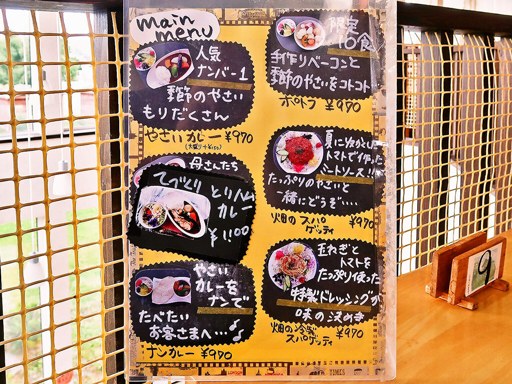 main menu
人気
ナンバー1
季節のやさい
もりだくさん
やさいカレー ¥970
母さんたち
てづくり とりハム
カレー
¥1100
やさい
カレーを
ナンで
たべたい
お客さまへ…♪
ナンカレー ¥970
限定
10食
手作りベーコンと
季節のやさいをコトコト
ポトフ ¥970
トマトで作った
ミートソース!!
たっぷりのやさいと
一緒にどうぞ…
畑のスパ
ゲッティ ¥970
玉ねぎと
トマトを
たっぷり使った
特製ドレッシングが
味の決めき
畑の冷製
スパゲッティ ¥970
9